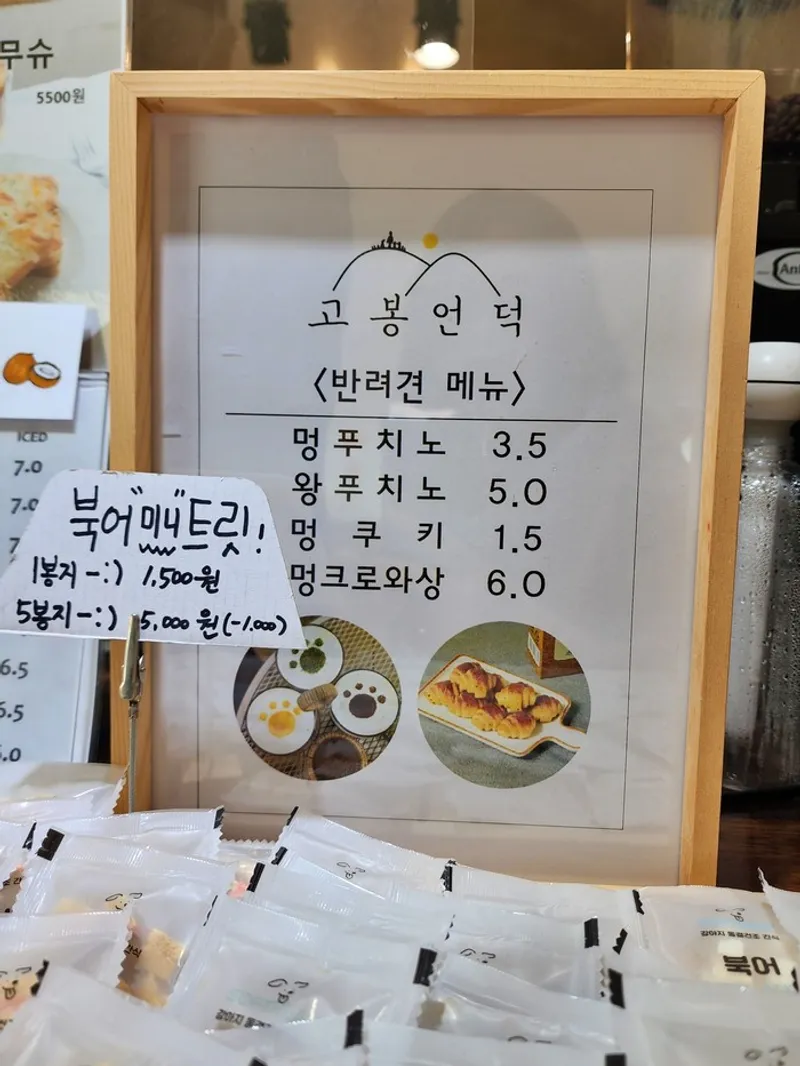 무슈
5500원
고봉언덕
〈반려견 메뉴〉
멍푸치노 3.5
왕푸치노 5.0
멍쿠키 1.5
멍크로와상 6.0
ICED
7.0
7.0
북어"미니"트릿!
1봉지 -:) 1,500원
5봉지 -:) 5,000원(-1.000)
6.5
6.5
강아지 동결건조 간식
북어